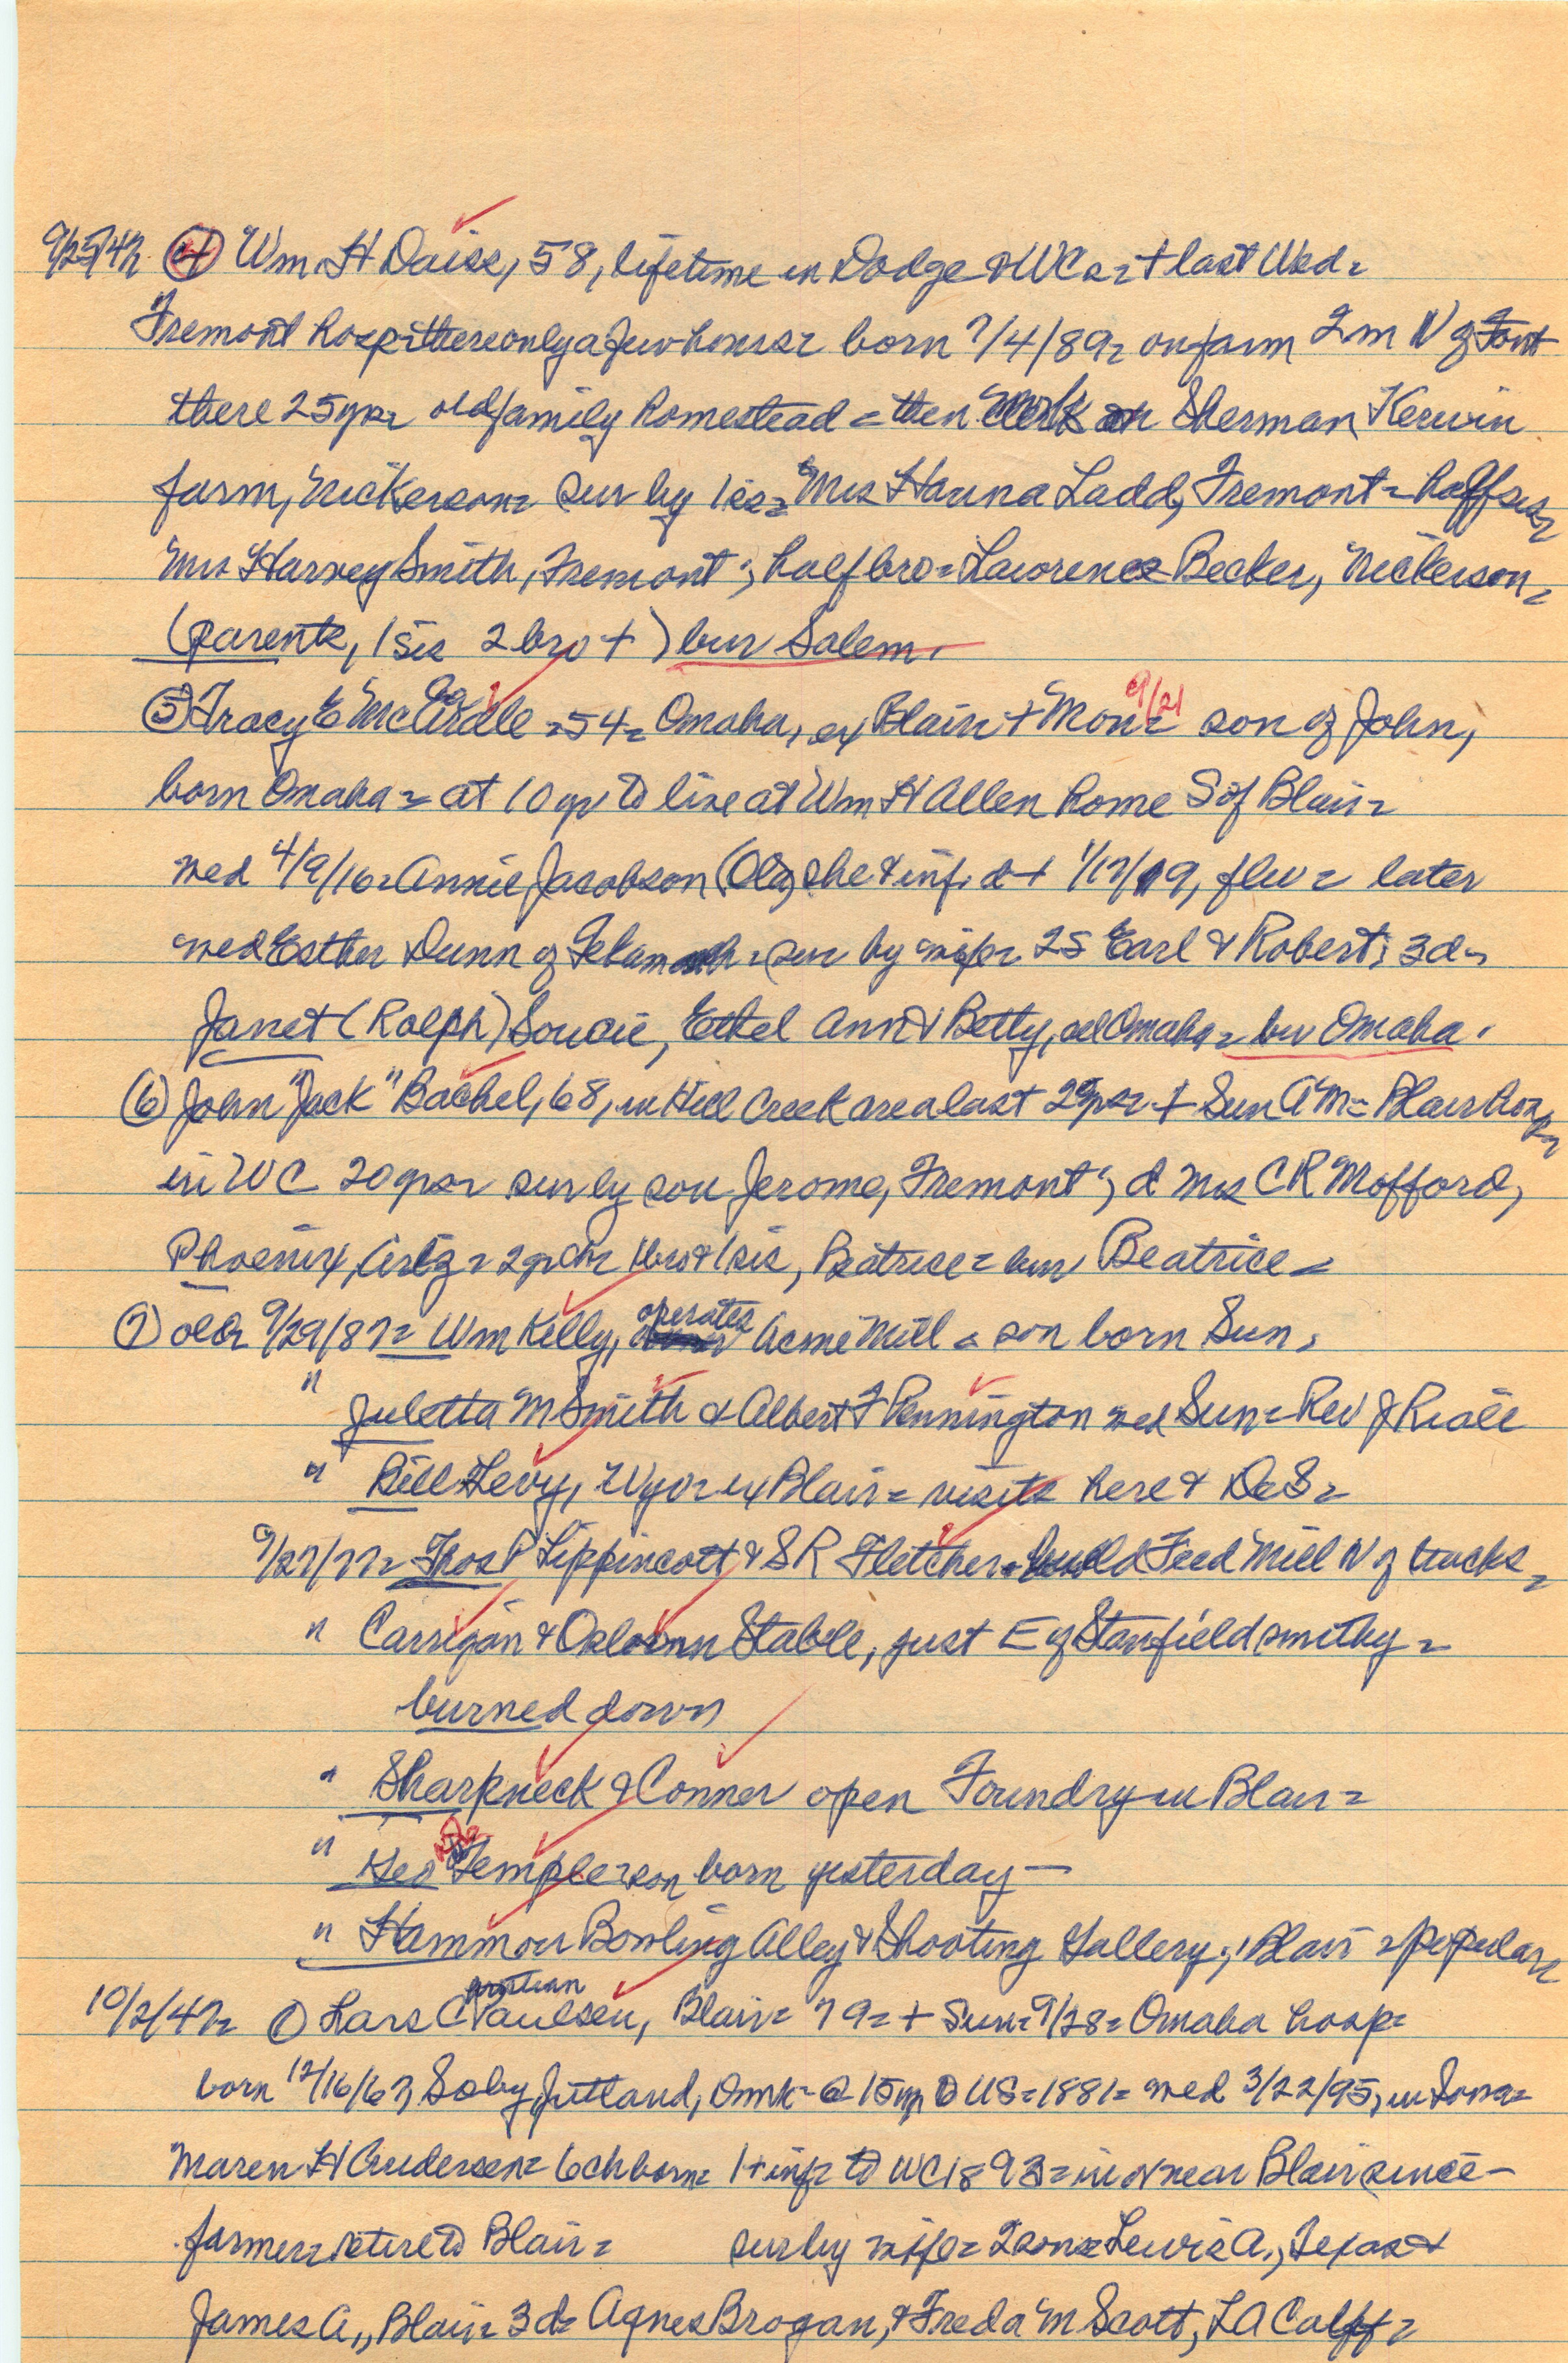 9/25/47= (4) Wm H Daiss, 58, lifetime in Dodge & WCs = + last Wed =
Fremont hosp = there only a few hours = born 7/4/89 = on farm 2 m N of Font
there 25 yrs = old family homestead = then work on Sherman Kerwin
farm, Nickerson = sur by 1 sis = Mrs Hanna Ladd, Fremont = half sis =
Mrs Harvey Smith, Fremont; half bro = Lawrence Becker, Nickerson =
(parents, 1 sis 2 bro +) bur Salem.
(5) Tracy E McArdle = 54 = Omaha, ex Blair + Mon = 9/21 son of John,
born Omaha = at 10 yr to live at Wm H Allen home S of Blair =
wed 4/9/16 = Annie Jacobson (Ole) she & inf. d + 1/17/19, flu = later
wed Esther Dunn of Tekamah = sur by wife = 2 S Earl & Robert; 3 d =
Janet (Ralph) Soucie, Ethel Ann & Betty, all Omaha = bur Omaha.
(6) John "Jack" Bachel, 68, in Hill Creek area last 2 yrs = + Sun AM = Blair hosp =
in WC 20 yrs = sur by son Jerome, Fremont; d Mrs C R Mofford,
Phoenix, Ariz = 2 gr ch = 1 bro & 1 sis, Beatrice = bur Beatrice =
(7) old 9/29/87 = Wm Kelly, operates Acme Mill = son born Sun.
" Juletta M Smith & Albert F Pennington wed Sun = Rev J Riale
" Bill Levy, Wyo = ex Blair = visits here & DeS =
9/27/77 = Thos P Lippincott & S R Fletcher = build Feed Mill N of tracks =
" Carrigan & Osborn Stable, just E of Stanfield smithy =
burned down
" Sharpneck & Conner open Foundry in Blair =
" Geo Temple = son born yesterday —
" Hammon Bowling Alley & Shooting Gallery, Blair = popular =
10/2/47 = (1) Lars Christian Paulsen, Blair = 79 = + Sun = 9/28 = Omaha hosp =
born 12/16/67 Soby, Jutland, Dmk = @ 15 yr to US = 1881 = wed 3/22/95, in Iowa =
Maren H Andersen = 6 ch born = 1 + inf = to WC 1893 = in or near Blair since —
farmer = retired Blair = sur by wife = 2 sons = Lewis A., Texas &
James A., Blair = 3 d = Agnes Brogan, & Freda M Scott, LA Calif =